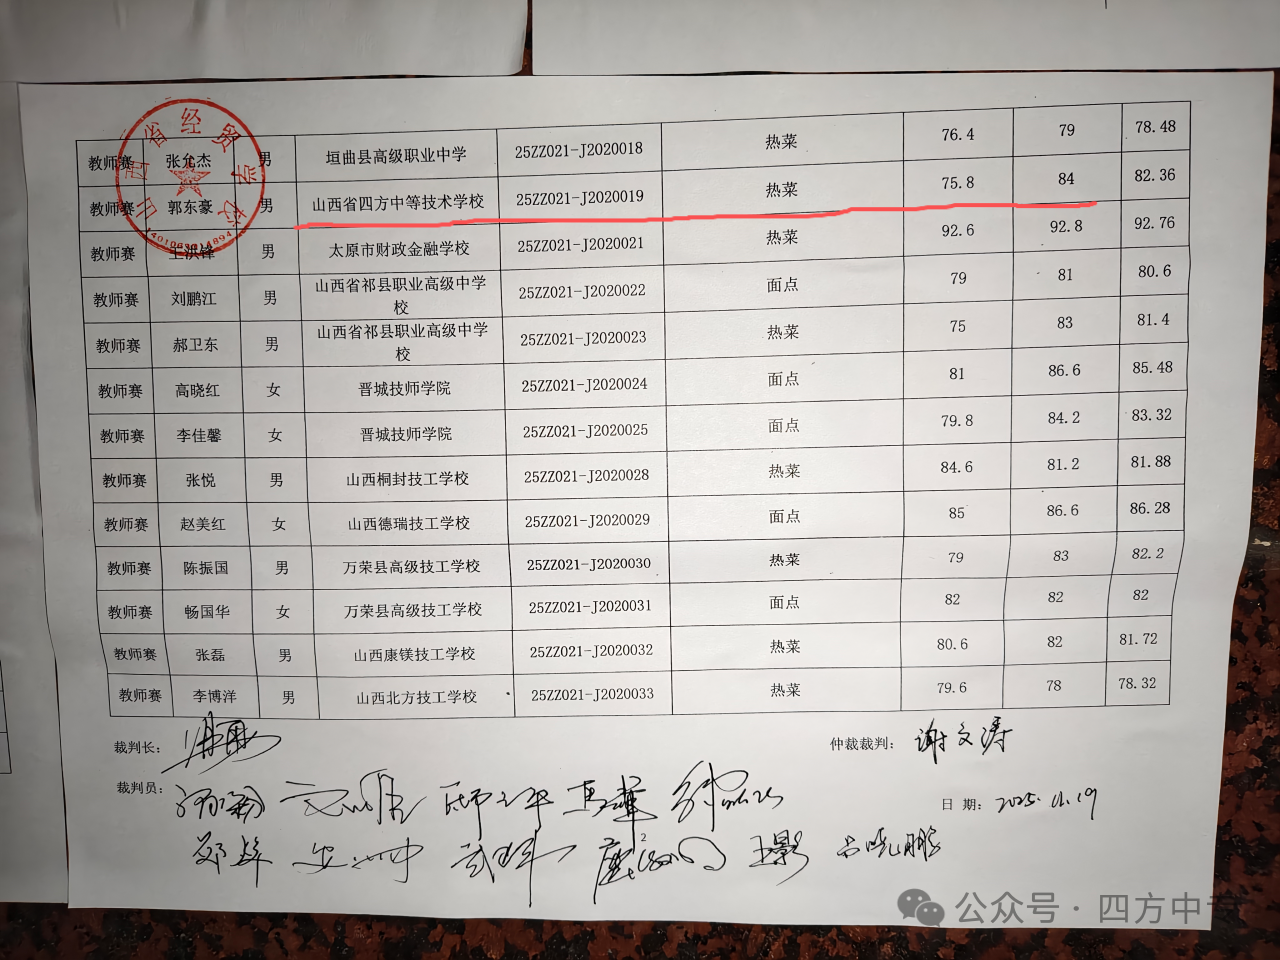 山西省经贸学校
教师赛 张允杰 男 垣曲县高级职业中学 25ZZ021-J2020018 热菜 76.4 79 78.48
教师赛 郭东豪 男 山西省四方中等技术学校 25ZZ021-J2020019 热菜 75.8 84 82.36
教师赛 王洪锋 男 太原市财政金融学校 25ZZ021-J2020021 热菜 92.6 92.8 92.76
教师赛 刘鹏江 男 山西省祁县职业高级中学校 25ZZ021-J2020022 面点 79 81 80.6
教师赛 郝卫东 男 山西省祁县职业高级中学校 25ZZ021-J2020023 热菜 75 83 81.4
教师赛 高晓红 女 晋城技师学院 25ZZ021-J2020024 面点 81 86.6 85.48
教师赛 李佳馨 女 晋城技师学院 25ZZ021-J2020025 面点 79.8 84.2 83.32
教师赛 张悦 男 山西桐封技工学校 25ZZ021-J2020028 热菜 84.6 81.2 81.88
教师赛 赵美红 女 山西德瑞技工学校 25ZZ021-J2020029 面点 85 86.6 86.28
教师赛 陈振国 男 万荣县高级技工学校 25ZZ021-J2020030 热菜 79 83 82.2
教师赛 畅国华 女 万荣县高级技工学校 25ZZ021-J2020031 面点 82 82 82
教师赛 张磊 男 山西康镁技工学校 25ZZ021-J2020032 热菜 80.6 82 81.72
教师赛 李博洋 男 山西北方技工学校 25ZZ021-J2020033 热菜 79.6 78 78.32
裁判长： 仲裁裁判： 谢文涛
裁判员：
日 期： 2025.11.19
2
公众号 · 四方中专